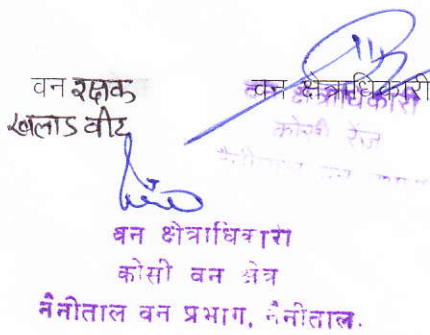 वन रक्षक
खलाड वीट
वन क्षेत्राधिकारी
वन क्षेत्राधिकारी
कोसी रेंज
नैनीताल वन
वन क्षेत्राधिकारी
कोसी वन क्षेत्र
नैनीताल वन प्रभाग, नैनीताल.